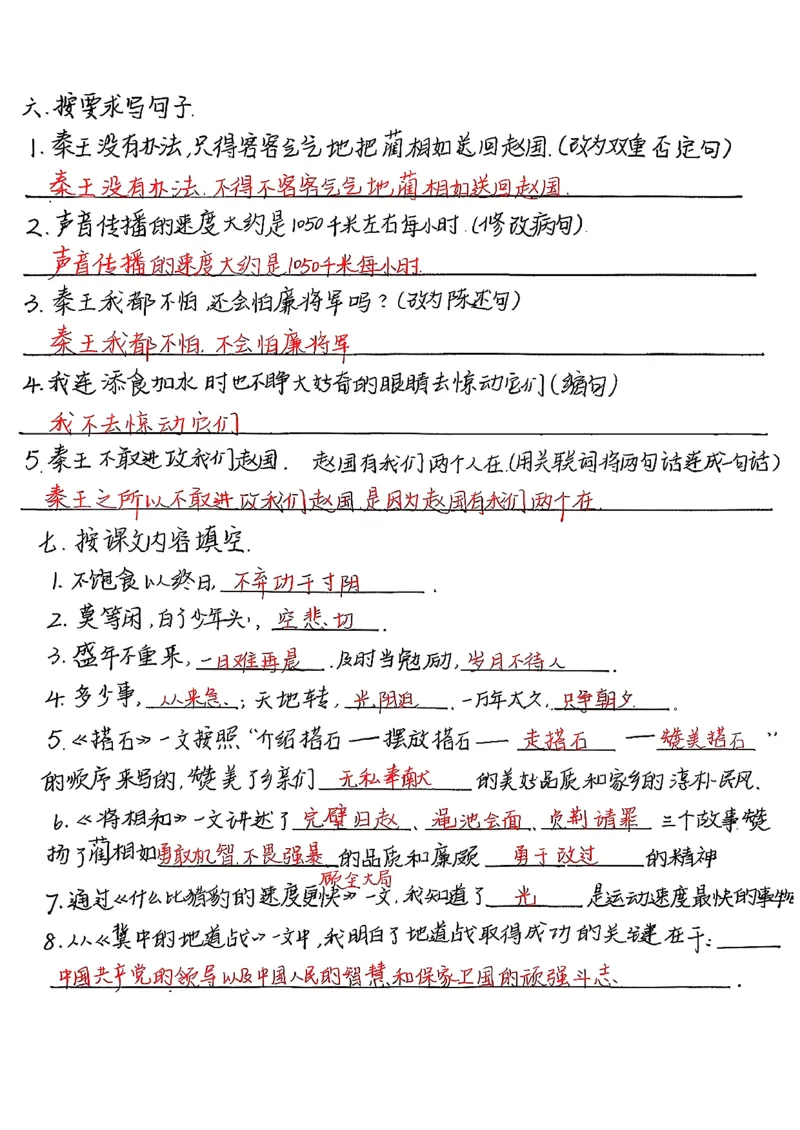 六.按要求写句子.
1.秦王没有办法,只得客客气气地把蔺相如送回赵国.(改为双重否定句)
秦王没有办法.不得不客客气气地蔺相如送回赵国.
2.声音传播的速度大约是1050千米左右每小时.(修改病句).
声音传播的速度大约是1050千米每小时.
3.秦王我都不怕,还会怕廉将军吗?(改为陈述句)
秦王我都不怕.不会怕廉将军
4.我连添食加水时也不睁大妙奇的眼睛去惊动它们(缩句)
我不去惊动它们
5.秦王不敢进攻我们赵国. 赵国有我们两个人在.(用关联词将两句话连成一句话)
秦王之所以不敢进攻我们赵国.是因为赵国有我们两个在.
七.按课文内容填空.
1.不饱食以终日,不弃功于寸阴.
2.莫等闲,白了少年头,空悲切.
3.盛年不重来,一日难再晨.及时当勉励,岁月不待人.
4.多少事,从来急;天地转,光阴迫.一万年太久,只争朝夕.。
5.《搭石》一文按照"介绍搭石—摆放搭石—走搭石—赞美搭石"
的顺序来写的,赞美了乡亲们无私奉献的美好品质和家乡的淳朴民风.
6.《将相和》一文讲述了完璧归赵、渑池会面、负荆请罪三个故事.赞
扬了蔺相如勇敢机智.不畏强暴的品质和廉颇勇于改过的精神
顾全大局
7.通过《什么比猎豹的速度更快》一文,我知道了光是运动速度最快的事物
8.从《冀中的地道战》一文中,我明白了地道战取得成功的关键在于:
中国共产党的领导以及中国人民的智慧、和保家卫国的顽强斗志、.